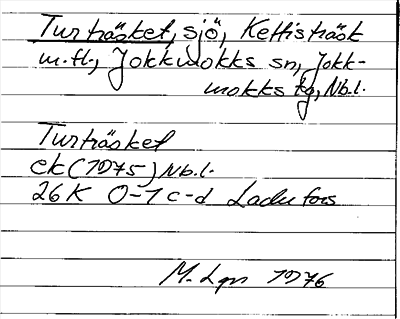 Turträsket, sjö, Kettisträsk
m.fl., Jokkmokks sn, Jokk-
mokks tg, Nb.l.
Turträsket
ek (1975) Nb.l.
26K 0-1 c-d Ladufors
M. Lgn 1976